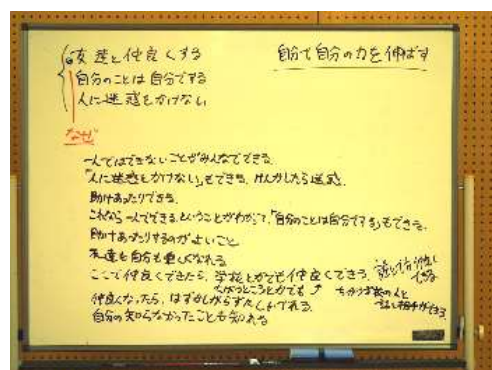 友達と仲良くする
自分のことは自分でする
人に迷惑をかけない
自分で自分の力を伸ばす
なぜ
一人ではできないことがみんなでできる。
「人に迷惑をかけない」もできる。けんかしたら迷惑。
助けあったりできる。
これなら一人でできるということがわかって、「自分のことは自分でする」もできる。
助けあったりするのがよいこと
友達も自分も
ここで仲良くできたら、学校とかでも仲良くできる。
ちがうところとかでも
ちがう学校の人と
仲良くなったら、はずかしがらずたしかめれる。
自分の知らなかったことも知れる